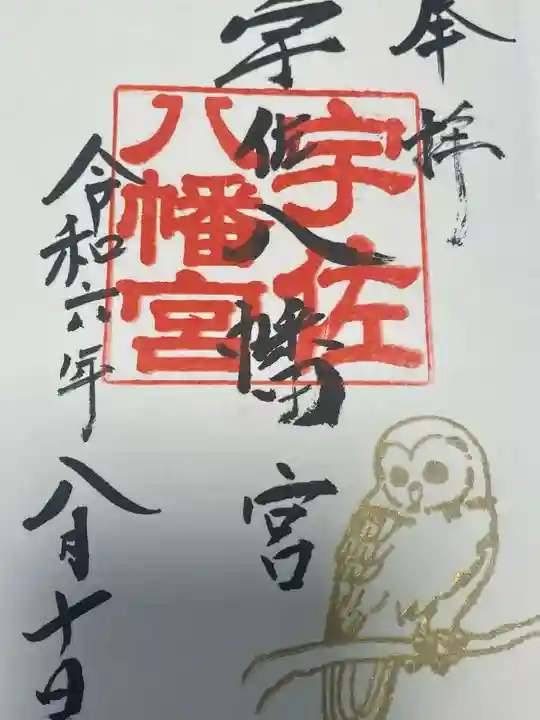 奉拝
宇佐八幡宮
宇佐
八幡宮
令和六年八月十日